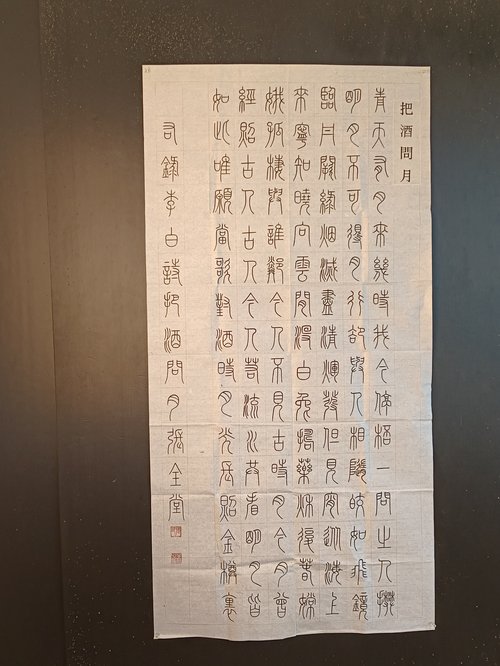 把酒問月
青天有月來幾時我今停桮一問之人攀
明月不可得月行卻與人相隨皎如飛鏡
臨丹闕綠烟滅盡清煇發但見宵從海上
來寧知曉向雲間沒白兔擣藥秋復春嫦
娥孤棲與誰鄰今人不見古時月今月曾
經照古人古人今人若流水共看明月皆
如此唯願當歌對酒時月光長照金樽裏
右錄李白詩把酒問月張全堂